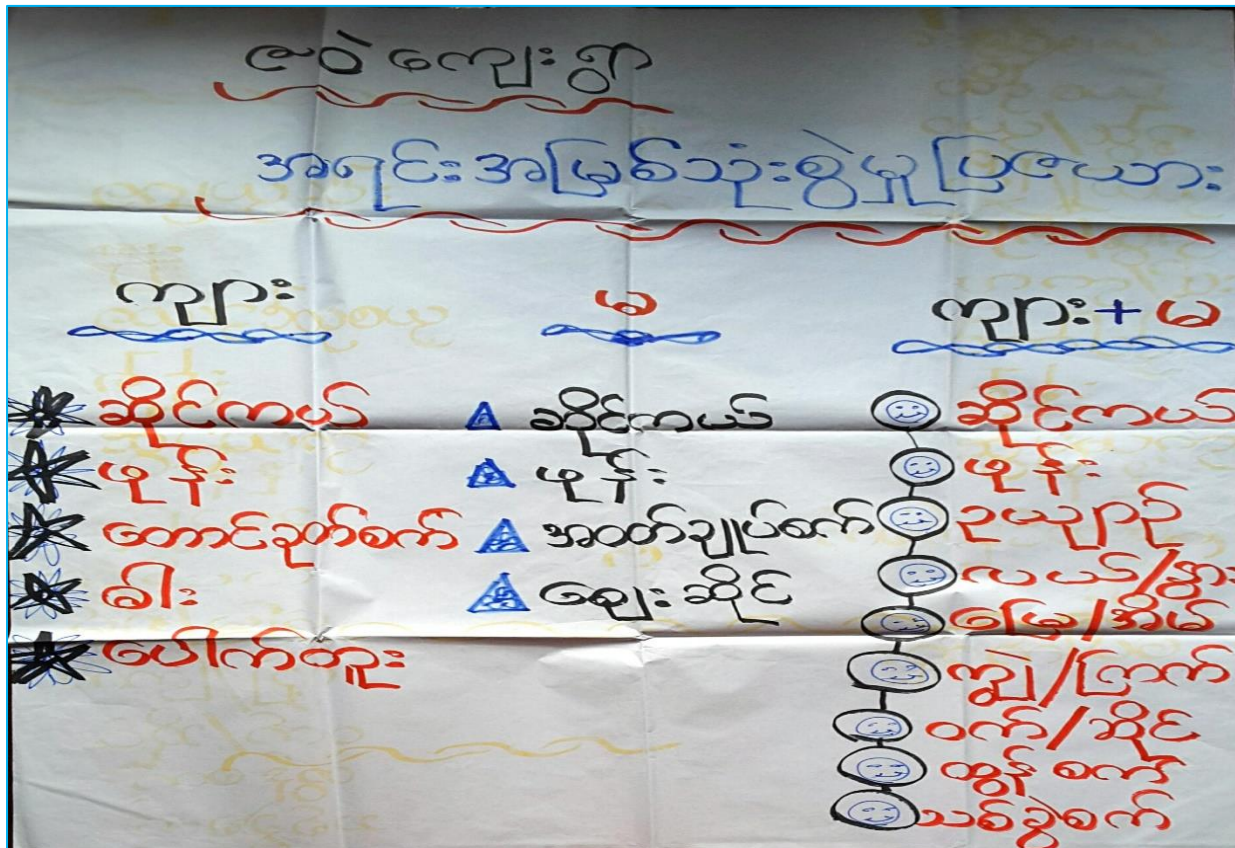 ဇဝဲကျေးရွာ
အရင်းအမြစ်သုံးစွဲမှုပြဇယား
ကျား
ဆိုင်ကယ်
ဖုန်း
တောင်ခုတ်စက်
ဓါး
ပေါက်တူး
မ
ဆိုင်ကယ်
ဖုန်း
အဝတ်ချုပ်စက်
ဈေးဆိုင်
ကျား+မ
ဆိုင်ကယ်
ဖုန်း
ဥယျာဉ်
လယ်/နွား
မြေ/အိမ်
ကျွဲ/ကြက်
ဝက်/ဆိုင်
ထွန်စက်
သစ်ခွဲစက်